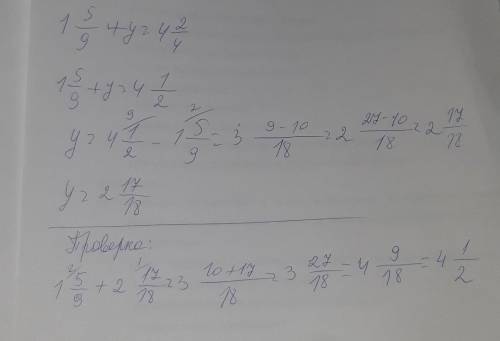 1 5/9 + y = 4 2/4
1 5/9 + y = 4 1/2
y = 4 1/2 ⁹ - 1 5/9 ² = 3 (9-10)/18 = 2 (27-10)/18 = 2 17/18
y = 2 17/18
Проверка:
1 5/9 ² + 2 17/18 ¹ = 3 (10+17)/18 = 3 27/18 = 4 9/18 = 4 1/2